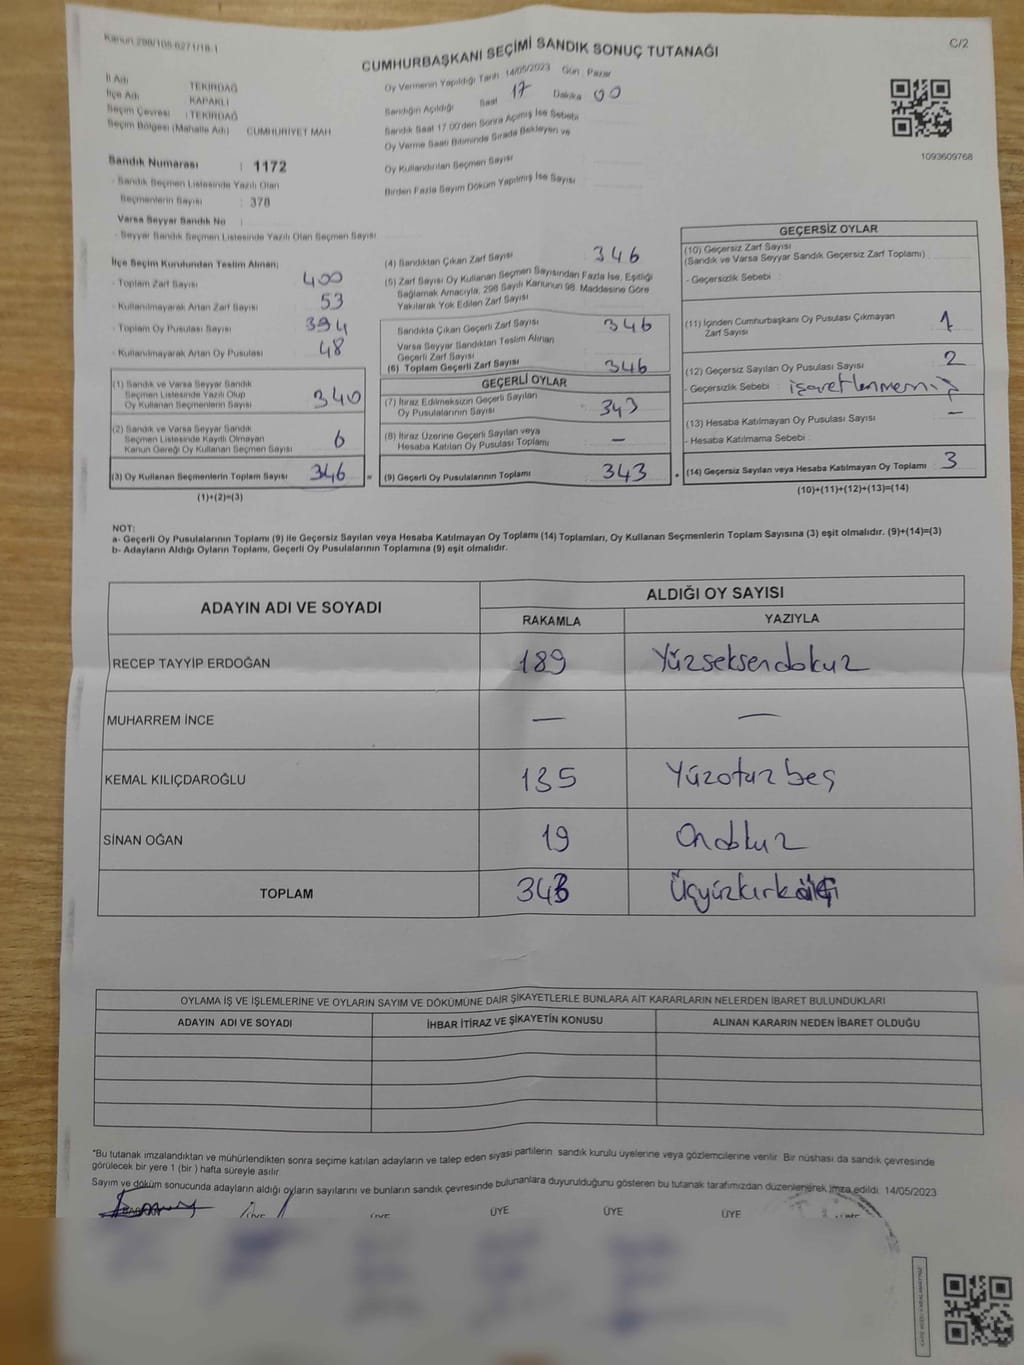 Kanun 298/105-6271/18-1
C/2
CUMHURBAŞKANI SEÇİMİ SANDIK SONUÇ TUTANAĞI
İl Adı TEKİRDAĞ
İlçe Adı KAPAKLI
Seçim Çevresi : TEKİRDAĞ
Seçim Bölgesi (Mahalle Adı) CUMHURİYET MAH
Sandık Numarası : 1172
- Sandık Seçmen Listesinde Yazılı Olan
Seçmenlerin Sayısı : 378
Varsa Seyyar Sandık No
- Seyyar Sandık Seçmen Listesinde Yazılı Olan Seçmen Sayısı
Oy Vermenin Yapıldığı Tarih 14/05/2023 Gün : Pazar
Sandığın Açıldığı Saat 17 Dakika 00
Sandık Saat 17.00'den Sonra Açılmış İse Sebebi
Oy Verme Saati Bitiminde Sırada Bekleyen ve
Oy Kullandırılan Seçmen Sayısı
Birden Fazla Sayım Döküm Yapılmış İse Sayısı
1093609768
İlçe Seçim Kurulundan Teslim Alınan;
- Toplam Zarf Sayısı : 400
- Kullanılmayarak Artan Zarf Sayısı : 53
- Toplam Oy Pusulası Sayısı : 394
- Kullanılmayarak Artan Oy Pusulası : 48
(1) Sandık ve Varsa Seyyar Sandık
Seçmen Listesinde Yazılı Olup
Oy Kullanan Seçmenlerin Sayısı 340
(2) Sandık ve Varsa Seyyar Sandık
Seçmen Listesinde Kayıtlı Olmayan
Kanun Gereği Oy Kullanan Seçmen Sayısı 6
(3) Oy Kullanan Seçmenlerin Toplam Sayısı 346 =
(1)+(2)=(3)
(4) Sandıktan Çıkan Zarf Sayısı 346
(5) Zarf Sayısı Oy Kullanan Seçmen Sayısından Fazla İse, Eşitliği
Sağlamak Amacıyla, 298 Sayılı Kanunun 98. Maddesine Göre
Yakılarak Yok Edilen Zarf Sayısı
Sandıkta Çıkan Geçerli Zarf Sayısı 346
Varsa Seyyar Sandıktan Teslim Alınan
Geçerli Zarf Sayısı
(6) Toplam Geçerli Zarf Sayısı 346
GEÇERLİ OYLAR
(7) İtiraz Edilmeksizin Geçerli Sayılan
Oy Pusulalarının Sayısı 343
(8) İtiraz Üzerine Geçerli Sayılan veya
Hesaba Katılan Oy Pusulası Toplamı —
(9) Geçerli Oy Pusulalarının Toplamı 343 +
GEÇERSİZ OYLAR
(10) Geçersiz Zarf Sayısı
(Sandık ve Varsa Seyyar Sandık Geçersiz Zarf Toplamı)
- Geçersizlik Sebebi :
(11) İçinden Cumhurbaşkanı Oy Pusulası Çıkmayan
Zarf Sayısı 1
(12) Geçersiz Sayılan Oy Pusulası Sayısı 2
- Geçersizlik Sebebi : işaretlenmemiş
(13) Hesaba Katılmayan Oy Pusulası Sayısı —
- Hesaba Katılmama Sebebi :
(14) Geçersiz Sayılan veya Hesaba Katılmayan Oy Toplamı 3
(10)+(11)+(12)+(13)=(14)
NOT:
a- Geçerli Oy Pusulalarının Toplamı (9) ile Geçersiz Sayılan veya Hesaba Katılmayan Oy Toplamı (14) Toplamları, Oy Kullanan Seçmenlerin Toplam Sayısına (3) eşit olmalıdır. (9)+(14)=(3)
b- Adayların Aldığı Oyların Toplamı, Geçerli Oy Pusulalarının Toplamına (9) eşit olmalıdır.
ADAYIN ADI VE SOYADI
ALDIĞI OY SAYISI
RAKAMLA YAZIYLA
RECEP TAYYİP ERDOĞAN 189 Yüzseksendokuz
MUHARREM İNCE — —
KEMAL KILIÇDAROĞLU 135 Yüzotuzbeş
SİNAN OĞAN 19 Ondokuz
TOPLAM 343 Üçyüzkırk
OYLAMA İŞ VE İŞLEMLERİNE VE OYLARIN SAYIM VE DÖKÜMÜNE DAİR ŞİKAYETLERLE BUNLARA AİT KARARLARIN NELERDEN İBARET BULUNDUKLARI
ADAYIN ADI VE SOYADI İHBAR İTİRAZ VE ŞİKAYETİN KONUSU ALINAN KARARIN NEDEN İBARET OLDUĞU
*Bu tutanak imzalandıktan ve mühürlendikten sonra seçime katılan adayların ve talep eden siyasi partilerin sandık kurulu üyelerine veya gözlemcilerine verilir. Bir nüshası da sandık çevresinde
görülecek bir yere 1 (bir) hafta süreyle asılır.
Sayım ve döküm sonucunda adayların aldığı oyların sayılarını ve bunların sandık çevresinde bulunanlara duyurulduğunu gösteren bu tutanak tarafımızdan düzenlenerek imza edildi. 14/05/2023
ÜYE ÜYE ÜYE